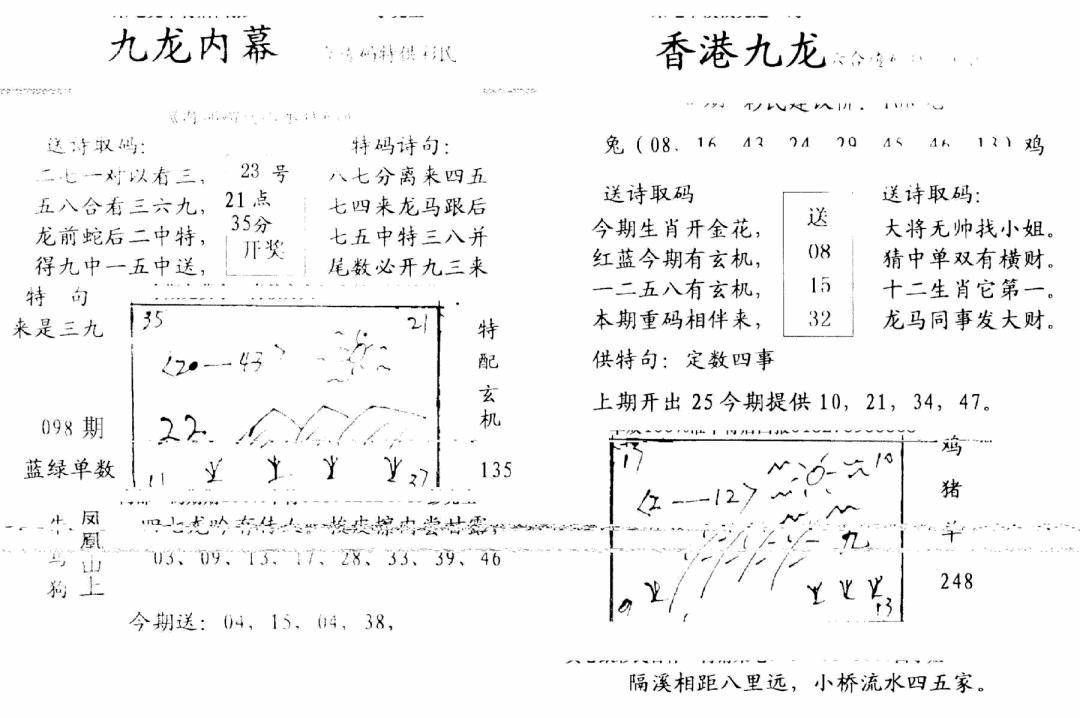 九龙内幕
码特供彩民
送诗取码：
二七一对以看三，
五八合看三六九，
龙前蛇后二中特，
得九中一五中送，
23 号
21点
35分
开奖
特码诗句：
八七分离来四五
七四来龙马跟后
七五中特三八并
尾数必开九三来
特 句
来是三九
35
21
20—43
22
11
27
特配玄机
135
098 期
蓝绿单数
牛
马
狗
凤凰山上
03、09、13、17、28、33、39、46
今期送：04、15、04、38，
香港九龙
兔（08、16 43 24 29 45 46 13）鸡
送诗取码
今期生肖开金花，
红蓝今期有玄机，
一二五八有玄机，
本期重码相伴来，
送
08
15
32
送诗取码：
大将无帅找小姐。
猜中单双有横财。
十二生肖它第一。
龙马同事发大财。
供特句：定数四事
上期开出 25 今期提供 10，21，34，47。
17
10
2—12
九
9
13
鸡
猪
羊
248
隔溪相距八里远，小桥流水四五家。